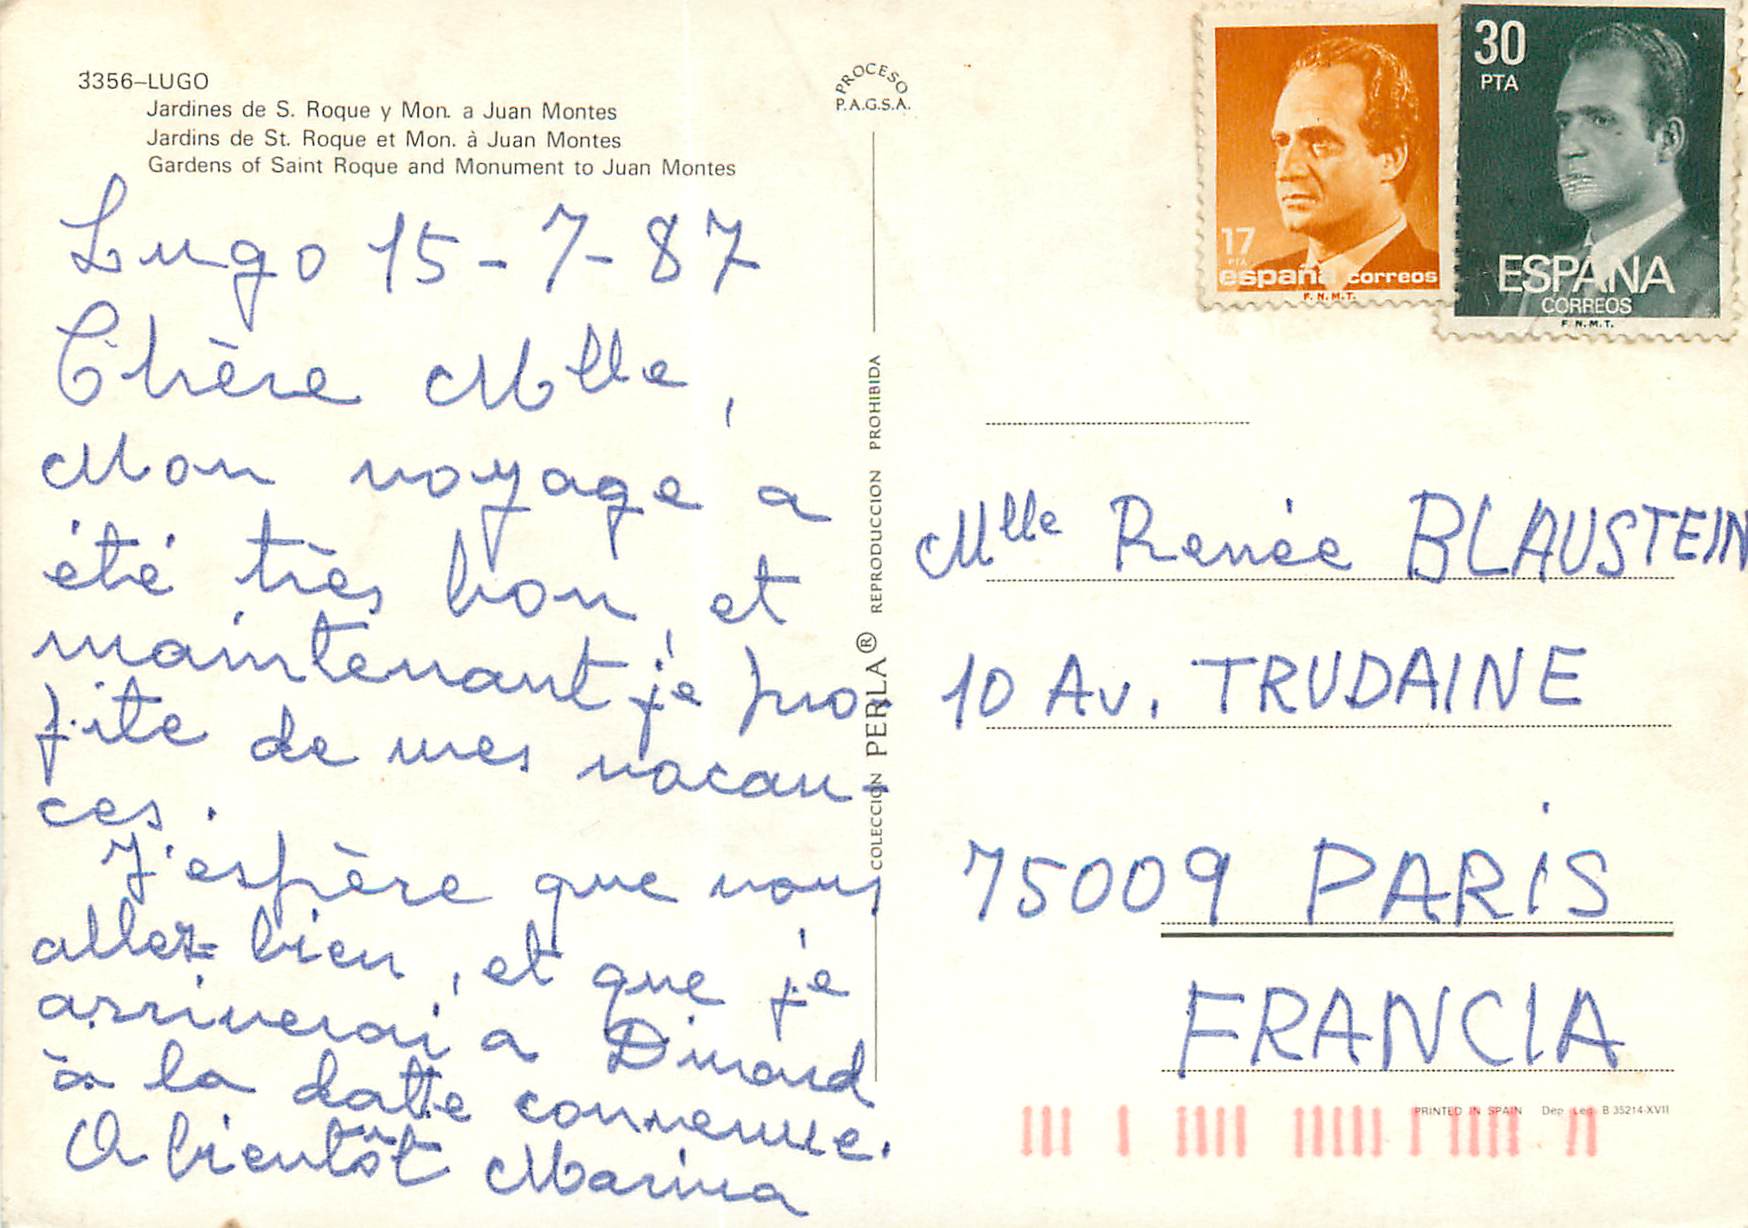 3356–LUGO
Jardines de S. Roque y Mon. a Juan Montes
Jardins de St. Roque et Mon. à Juan Montes
Gardens of Saint Roque and Monument to Juan Montes
Lugo 15-7-87
Chère Mlle,
Mon voyage a
été très bon, et
maintenant je pro-
fite de mes vacan-
ces.
J'espère que vous
allez bien, et que je
arriverai a Dinard
à la datte convenue.
A bientôt Marina
PROCESO
P.A.G.S.A.
COLECCION PERLA® REPRODUCCION PROHIBIDA
17
PTA
españa correos
F.N.M.T.
30
PTA
ESPAÑA
CORREOS
F.N.M.T.
Mlle Renée BLAUSTEIN
10 Av. TRUDAINE
75009 PARIS
FRANCIA
PRINTED IN SPAIN Dep. Leg. B 35214-XVII